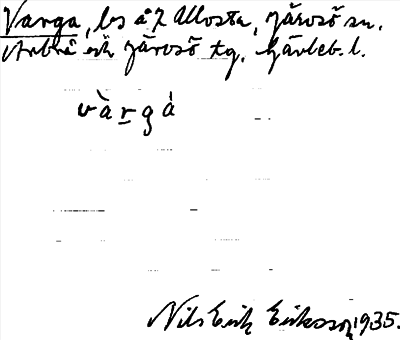 Varga, bs å 7 Allosta, Järvsö sn.
Arbrå och Järvsö tg. Gävleb. l.
vàrgá
Nils Erik Eriksson 1935.